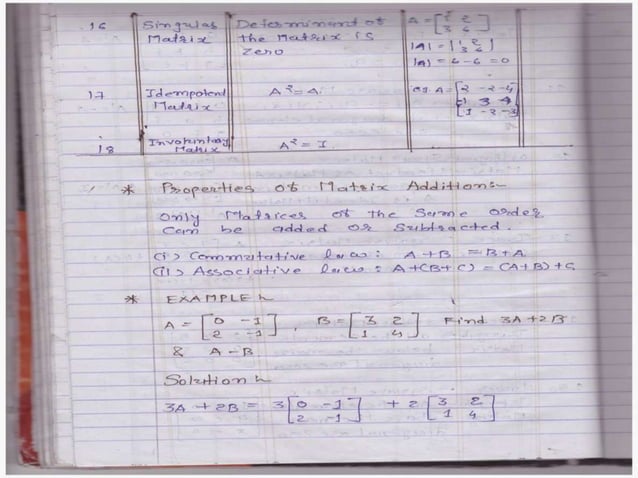 16 Singular Determinant of A = [1 2
Matrix the Matrix is 3 6]
zero |A| = |1 2
3 6|
|A| = 6-6 = 0
17 Idempotent A² = A. eg. A = [2 -2 -4
Matrix -1 3 4
1 -2 -3]
18 Involuntary A² = I.
Matrix
* Properties of Matrix Addition:-
Only Matrices of The Same Order
Can be added or Subtracted.
(i) Commutative law : A + B = B + A
(ii) Associative law : A+(B+C) = (A+B)+C
* EXAMPLE
A = [0 -1 , B = [3 2 Find 3A+2B
2 -1] 1 4]
& A - B
Solution
3A + 2B = 3[0 -1 + 2[3 2
2 -1] 1 4]